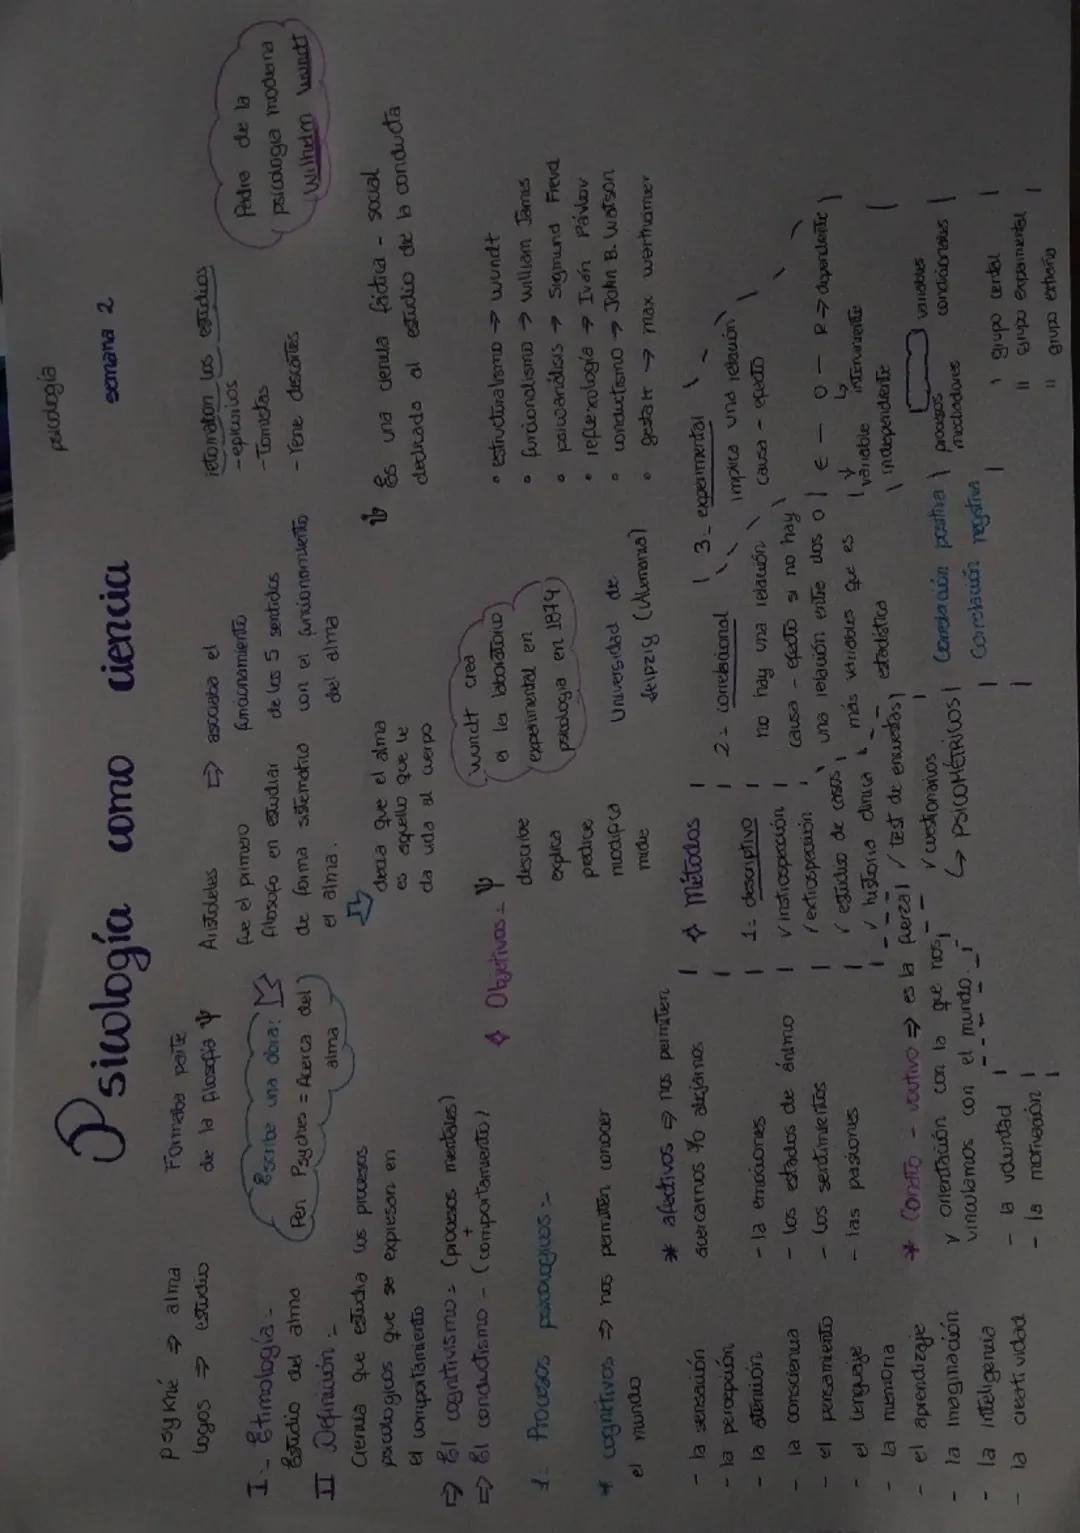 psicología
Psicología como ciencia
semana 2
psykhé ⇒ alma
logos ⇒ estudio
Formaba parte
de la filosofía ψ
I.- Etimología.-
Estudio del alma
II Definición:-
Ciencia que estudia los procesos
psicologicos que se expresan en
el comportamiento
⇒ El cognitivismo = (procesos mentales)
+
⇒ El conductismo - (comportamiento)
Escribe una obra:
Peri Psyches = Acerca del
alma
Aristóteles
fue el primero
filosofo en estudiar
de forma sistematica
el alma.
⇒ asociaba el
funcionamiento
de los 5 sentidos
con el funcionamiento
del alma
decia que el alma
es aquello que le
da vida al cuerpo
retomaron los estudios
- epicurios
- Tomistas
- Rene descartes
Padre de la
psicologia moderna
Wilhelm Wundt
ψ Es una ciencia fáctica - social
dedicada al estudio de la conducta
◊ Objetivos = ψ
describe
explica
predice
modifica
mide
wundt crea
el 1er laboratorio
experimental en
psicologia en 1879
Universidad de
Leipzig (Alemania)
• estructuralismo → wundt
• funcionalismo → william James
• psicoanálisis → Sigmund Freud
• reflexología → Iván Pávlov
• conductismo → John B. Watson
• gestalt → max wertheimer
1: Procesos psicologicos:-
* cognitivos ⇒ nos permiten conocer
el mundo
- la sensación
- la percepción
- la atención
- la consciencia
- el pensamiento
- el lenguaje
- la memoria
- el aprendizaje
- la imaginación
- la inteligencia
- la creatividad
* afectivos ⇒ nos permiten
acercarnos y/o alejarnos
- la emociones
- los estados de ánimo
- los sentimientos
- las pasiones
* Conato - volitivo ⇒ es la fuerza
y orientación con la que nos
vinculamos con el mundo.
- la voluntad
- la motivación
◊ Métodos
1- descriptivo
✓ instrospección
✓ extrospección
✓ estudio de casos
✓ historia clinica
✓ test de encuestas
✓ cuestionarios
↳ PSICOMÉTRICOS
2- correlacional
no hay una relación
causa - efecto si no hay
una relación entre dos o
más variables que es
estadística
Correlación positiva
Correlación negativa
3- experimental
implica una relación
causa - efecto
E — O — R → dependiente
variable
independiente
interviniente
procesos
mediadores
variables
condicionales
grupo control
" grupo experimental
" grupo extraño